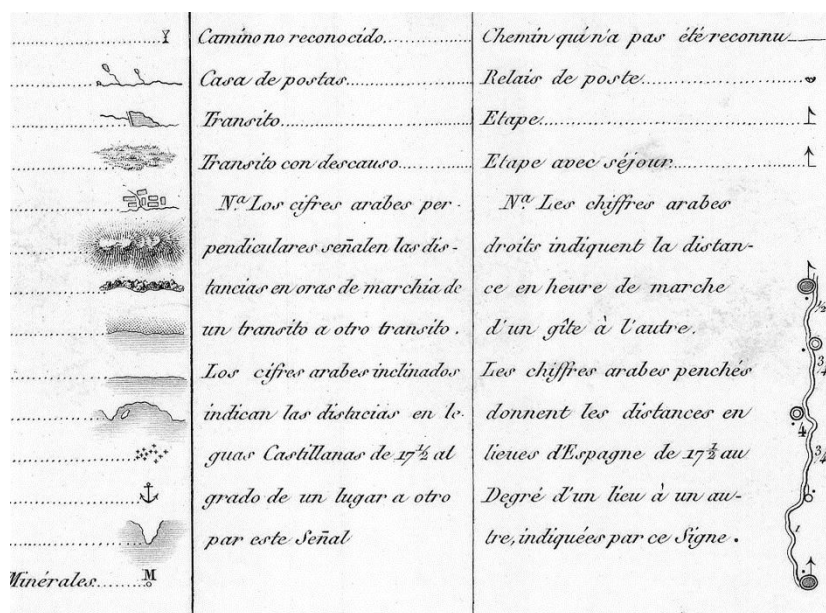 Camino no reconocido
Casa de postas
Transito
Transito con descauso
N.a Los cifres arabes per-
pendiculares señalen las dis-
tancias en oras de marchia de
un transito a otro transito.
Los cifres arabes inclinados
indican las distacias en le-
guas Castillanas de 17½ al
grado de un lugar a otro
par este Señal
Chemin qui n'a pas été reconnu
Relais de poste
Etape
Etape avec séjour
N.a Les chiffres arabes
droits indiquent la distan-
ce en heure de marche
d'un gîte à l'autre.
Les chiffres arabes penchés
donnent les distances en
lieues d'Espagne de 17½ au
Degré d'un lieu à un au-
tre, indiquées par ce Signe.
Minérales M
½
3/4
4
3/4
1